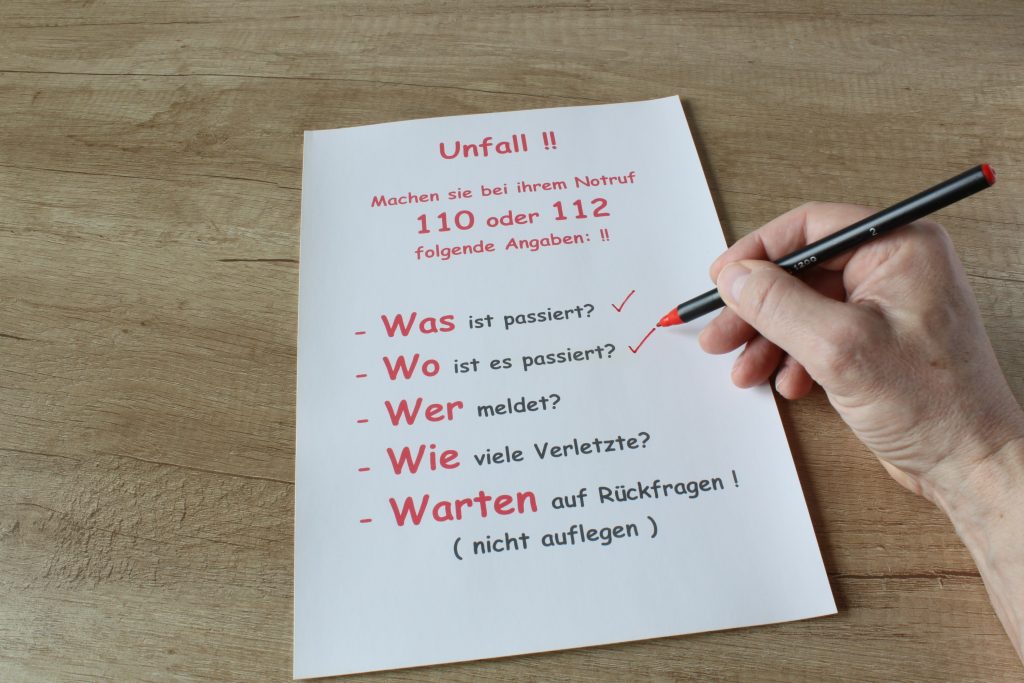 Unfall !!
Machen sie bei ihrem Notruf
110 oder 112
folgende Angaben: !!
- Was ist passiert? ✓
- Wo ist es passiert? ✓
- Wer meldet?
- Wie viele Verletzte?
- Warten auf Rückfragen !
( nicht auflegen )
2
1209